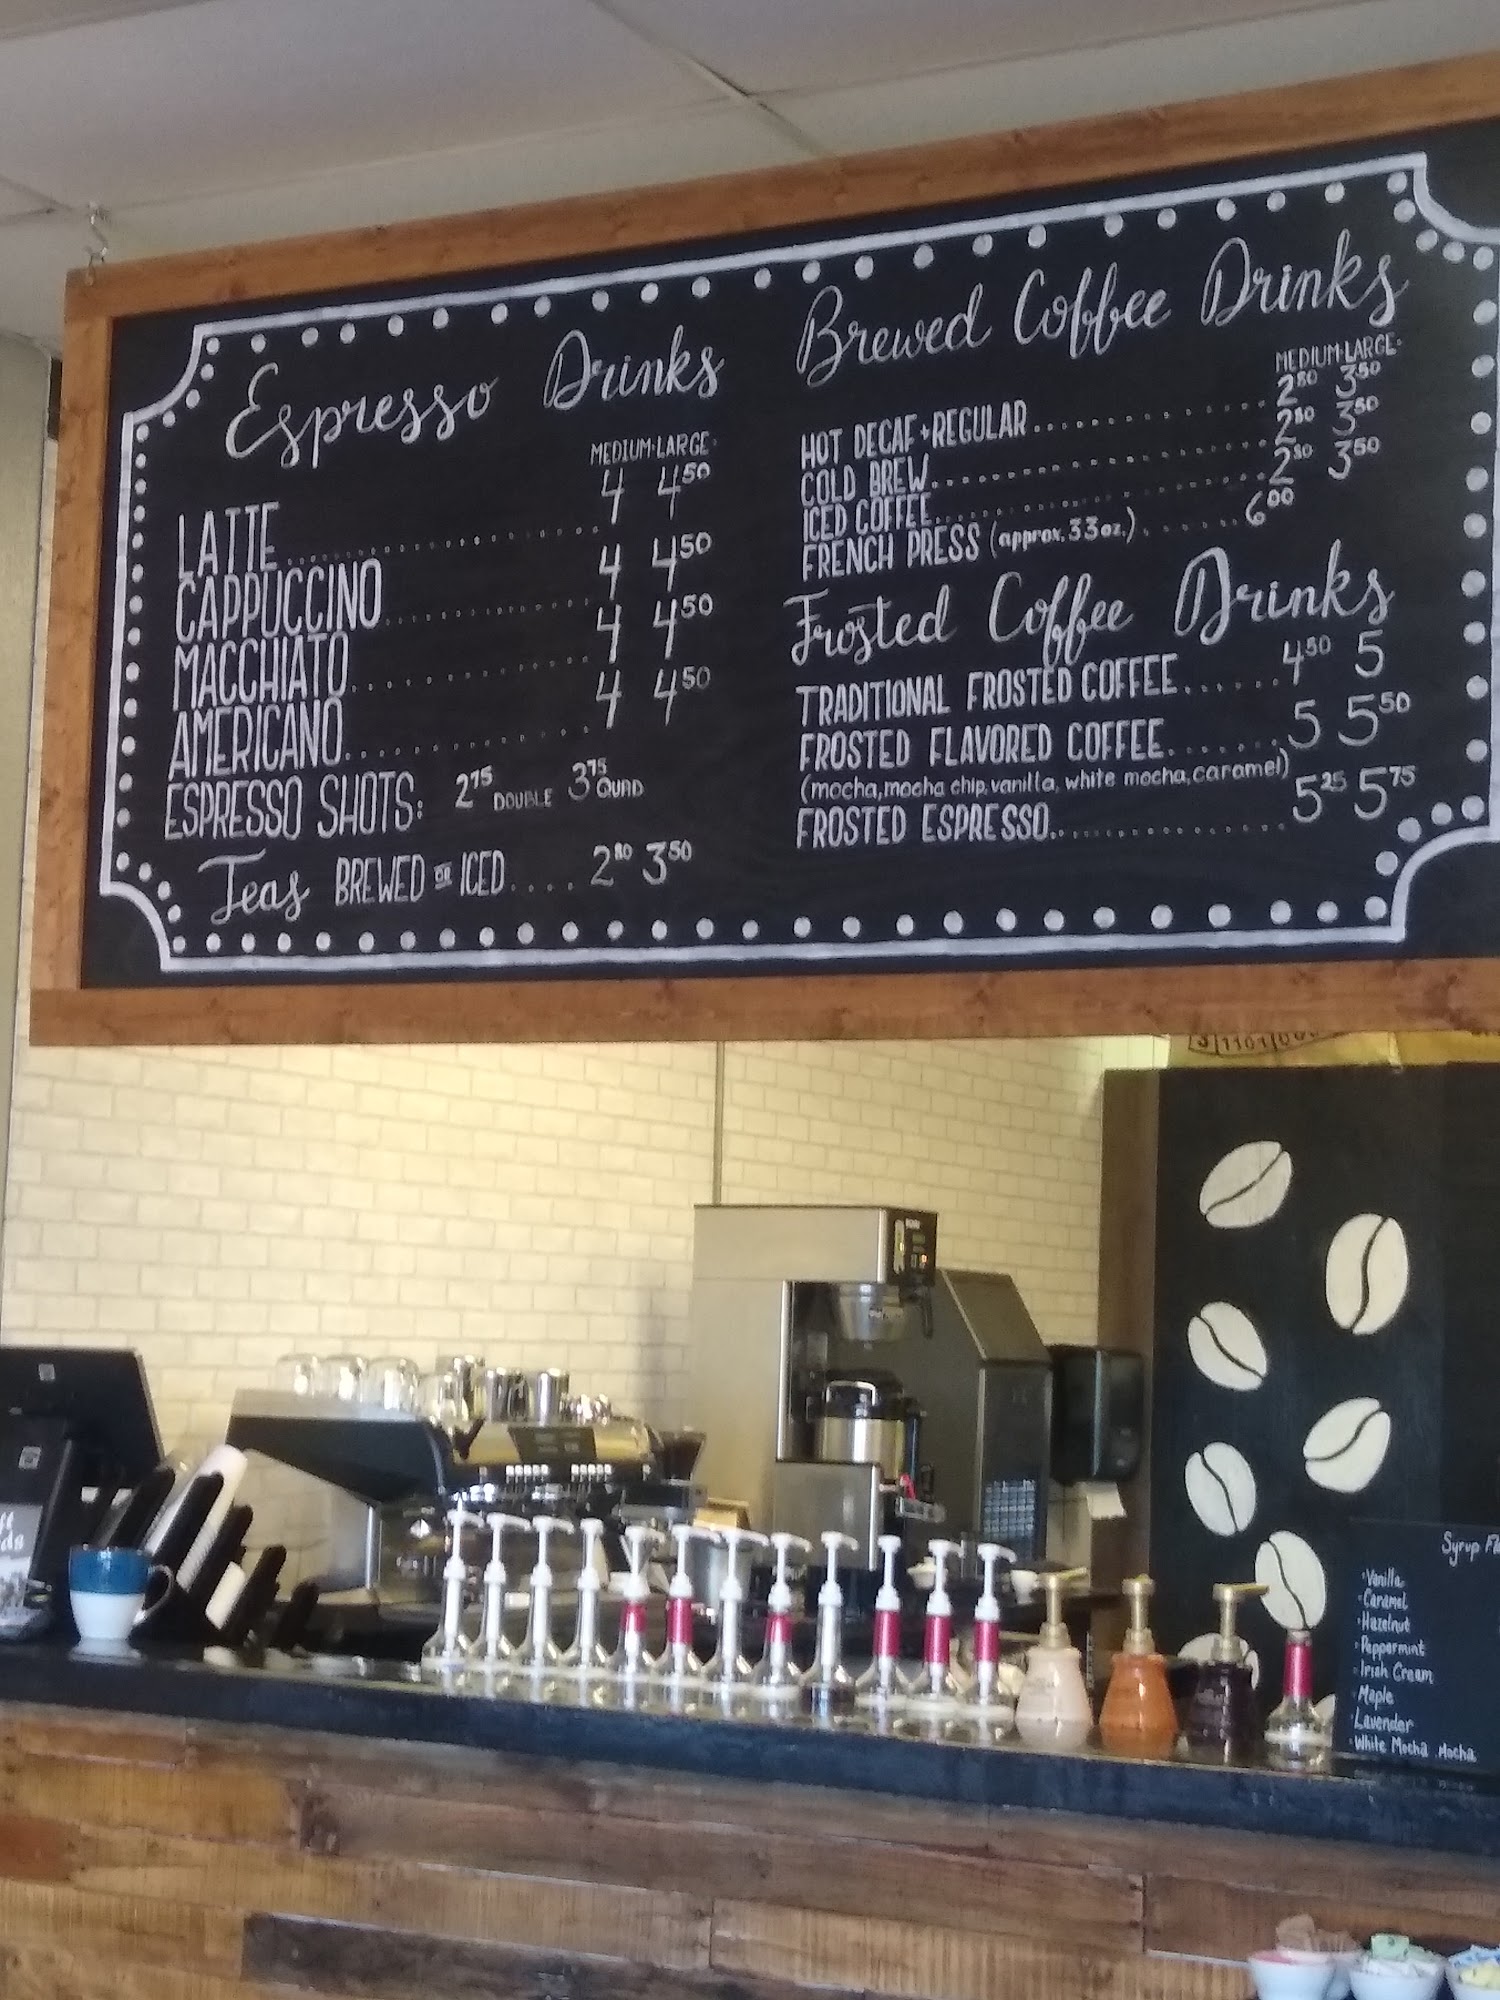 Espresso Drinks
MEDIUM·LARGE·
LATTE.................... 4 4⁵⁰
CAPPUCCINO............... 4 4⁵⁰
MACCHIATO................ 4 4⁵⁰
AMERICANO................ 4 4⁵⁰
ESPRESSO SHOTS: 2⁷⁵ DOUBLE 3⁷⁵ QUAD
Teas BREWED OR ICED.... 2⁸⁰ 3⁵⁰
Brewed Coffee Drinks
MEDIUM·LARGE·
HOT DECAF + REGULAR.............. 2⁸⁰ 3⁵⁰
COLD BREW.................... 2⁸⁰ 3⁵⁰
ICED COFFEE.................... 2⁸⁰ 3⁵⁰
FRENCH PRESS (approx. 33 oz.)....... 6⁰⁰
Frosted Coffee Drinks
TRADITIONAL FROSTED COFFEE...... 4⁵⁰ 5
FROSTED FLAVORED COFFEE....... 5 5⁵⁰
(mocha, mocha chip, vanilla, white mocha, caramel)
FROSTED ESPRESSO................ 5²⁵ 5⁷⁵
Syrup
·Vanilla
·Caramel
·Hazelnut
·Peppermint
·Irish Cream
·Maple
·Lavender
·White Mocha ·Mocha